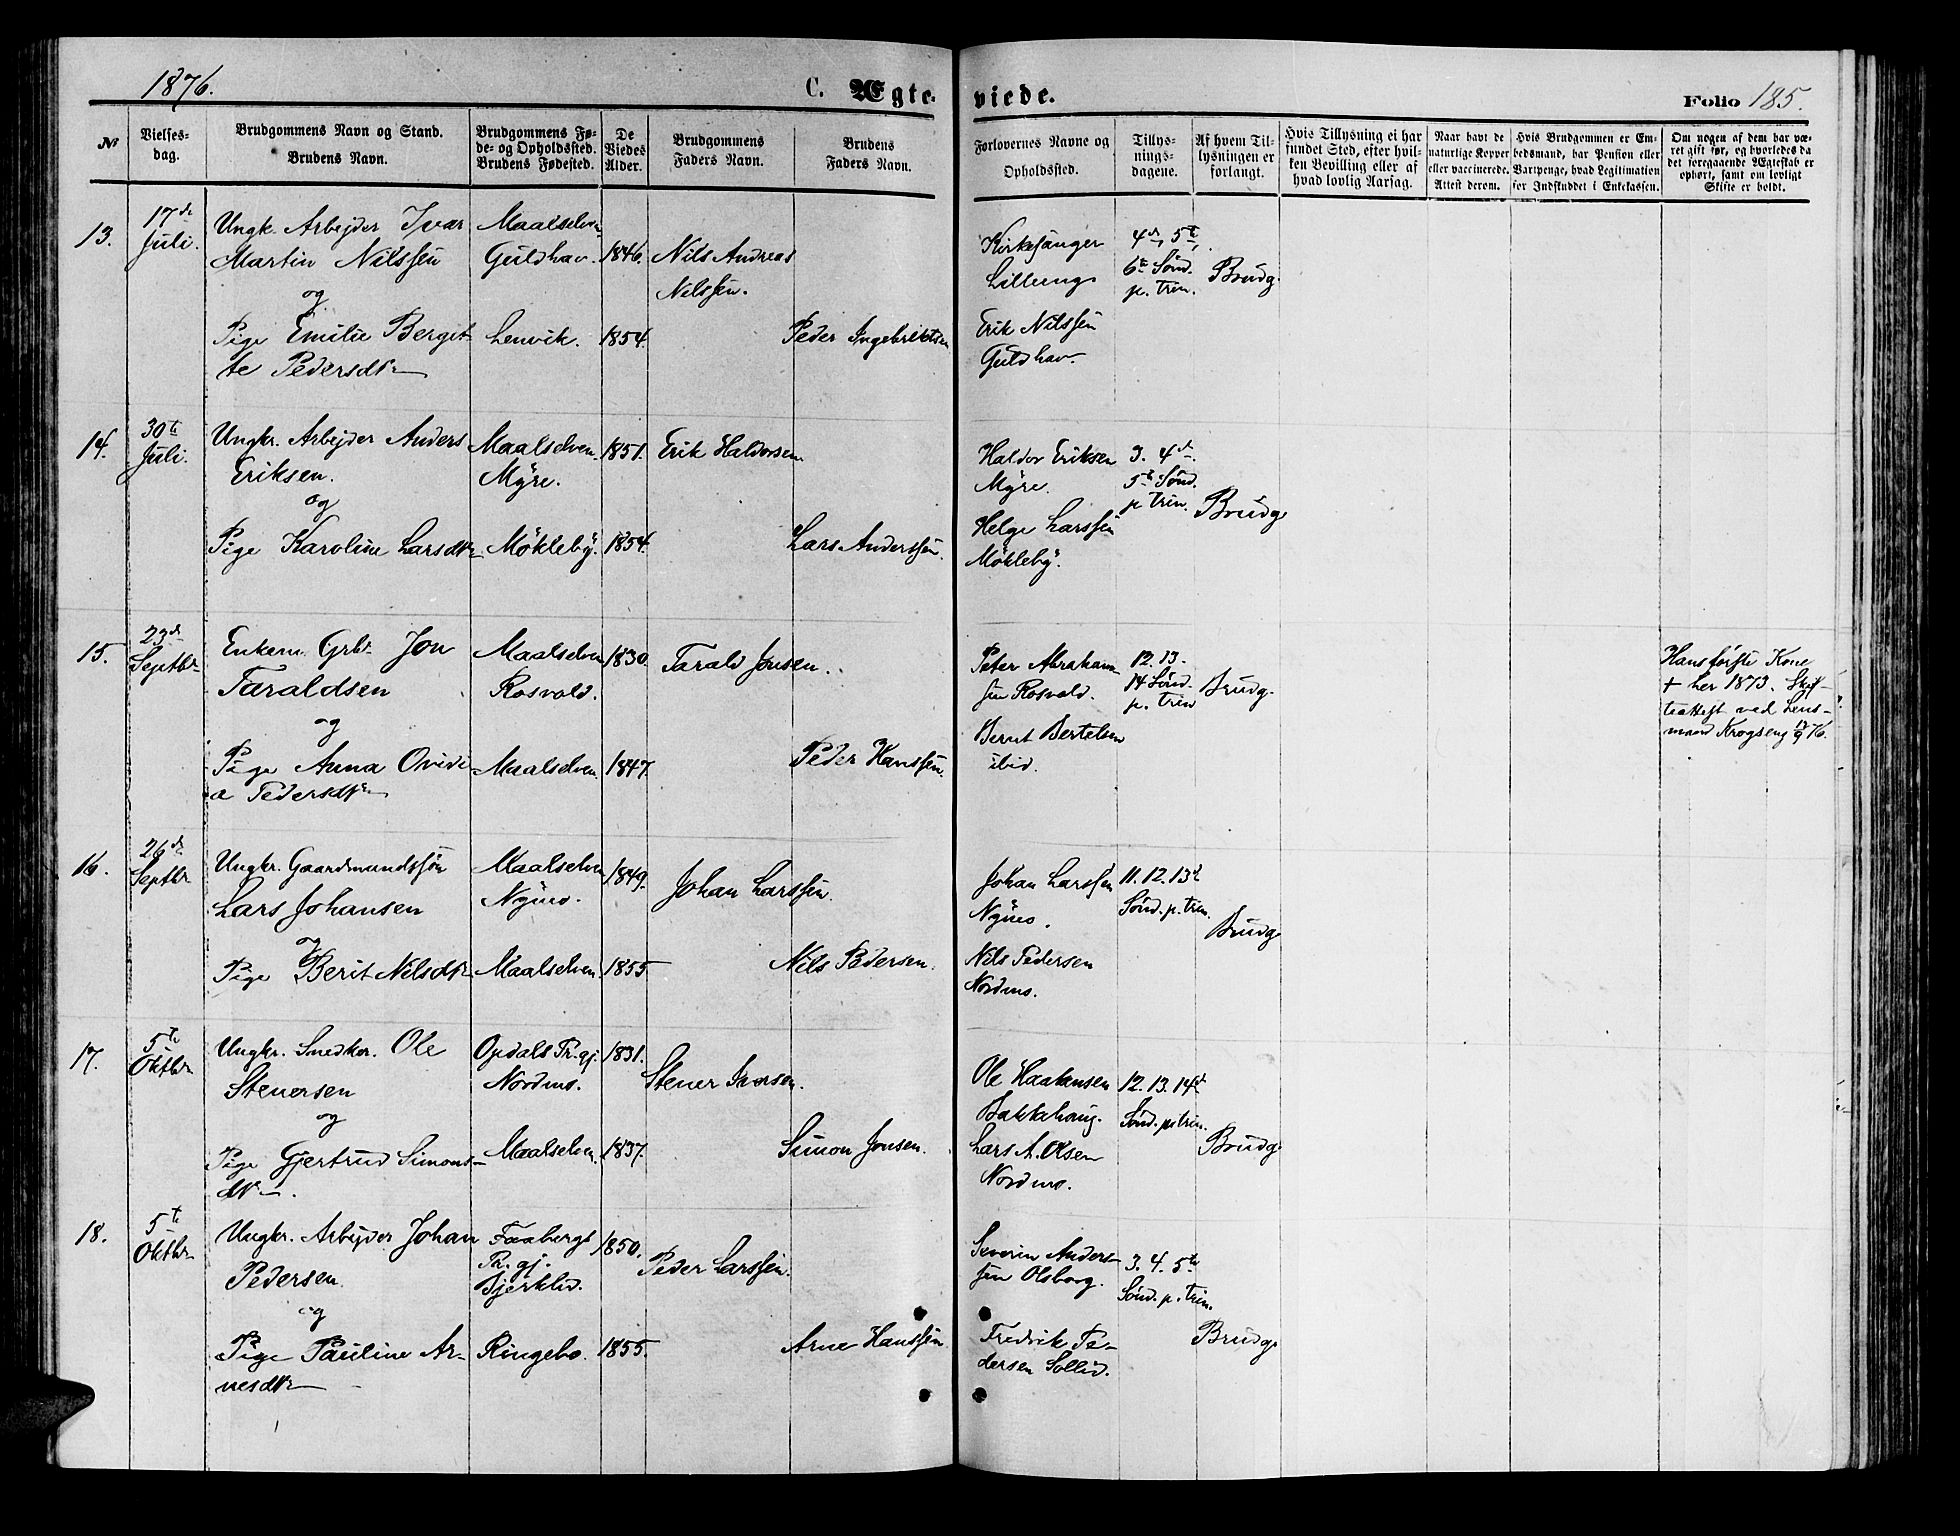 1876.
C. Ægte-
viede.
Folio 185.
No
Vielses-
dag.
Brudgommens Navn og Stand.
Brudens Navn.
Brudgommens Fø-
de- og Opholdsted.
Brudens Fødested.
De
Viedes
Alder.
Brudgommens
Faders Navn.
Brudens
Faders Navn.
Forlovernes Navne og
Opholdsted.
Tillys-
nings-
dagene.
Af hvem Til-
lysningen er
forlangt.
Hvis Tillysning ei har
fundet Sted, efter hvil-
ken Bevilling eller af
hvad lovlig Aarsag.
Naar havt de
naturlige Kopper
eller vaccinerede.
Attest derom.
Hvis Brudgommen er Em-
bedsmand, har Pension eller
Vartpenge, hvad Legitimation
for Indskuddet i Enkekassen.
Om nogen af dem har væ-
ret gift før, og hvorledes da
det foregaaende Ægteskab er
ophørt, samt om lovligt
Skifte er holdt.
13.
17de
Juli.
Ungk. Arbejder Ivar
Martin Nilssen
og
Pige Emilie Berget-
te Pedersdtr
Maalselven
Guldhav.
Lenvik.
1846.
1854.
Nils Andreas
Nilssen.
Peder Ingebrigtsen
Kirkesanger
Lilleeng
Erik Nilssen
Guldhav.
4de, 5te,
6te Sønd.
p. trin.
Brudg.
14.
30te
Juli.
Ungkr. Arbejder Anders
Eriksen.
og
Pige Karoline Larsdtr
Maalselven.
Myre.
Møkleby.
1851.
1854.
Erik Haldorsen
Lars Anderssen.
Haldor Eriksen
Myre.
Helge Larssen
Møkleby.
3. 4de
5te Sønd.
p trin.
Brudg.
15.
23de
Septbr
Enkem. Grbr Jon
Taraldsen
og
Pige Anna Ovidi-
a Pedersdtr
Maalselven
Rosvold.
Maalselven
1830.
1847.
Tarald Jonsen.
Peder Hanssen.
Peter Abraham-
sen Rosvold.
Bernt Bertelsen
ibid.
12. 13.
14 Sønd.
p. trin
Brudg.
Hans første Kone
+ her 1873. Skif-
teattest ved Lens-
mand Krogseng 17/9 76.
16.
26de
Septbr
Ungkr. Gaardmandssøn
Lars Johansen
og
Pige Berit Nilsdtr
Maalselven
Nymo.
Maalselven.
1849.
1855
Johan Larssen.
Nils Pedersen.
Johan Larssen
Nymo.
Nils Pedersen
Nordmo.
11. 12. 13de
Sønd. p. trin.
Brudg.
17.
5te
Oktbr
Ungkr. Snedker. Ole
Stenersen
og
Pige Gjertrud Simons-
dtr.
Opdals Pr.gj.
Nordmo.
Maalselven.
1831.
1837.
Stener Iversen.
Simon Jonsen.
Ole Haakensen
Bakkehaug.
Lars A. Olsen
Nordmo.
12. 13. 14de
Sønd. p. trin.
Brudg.
18.
5te
Oktbr
Ungkr. Arbejder Johan
Pedersen.
og
Pige Pauline Ar-
nesdtr
Faabergs
Pr. gj.
Bjerklid.
Ringebo.
1850.
1855.
Peder Larssen.
Arne Hanssen
Severin Anders-
sen Olsborg.
Fredrik Pe-
dersen Sollid.
3. 4. 5te
Sønd. p. trin.
Brudg.